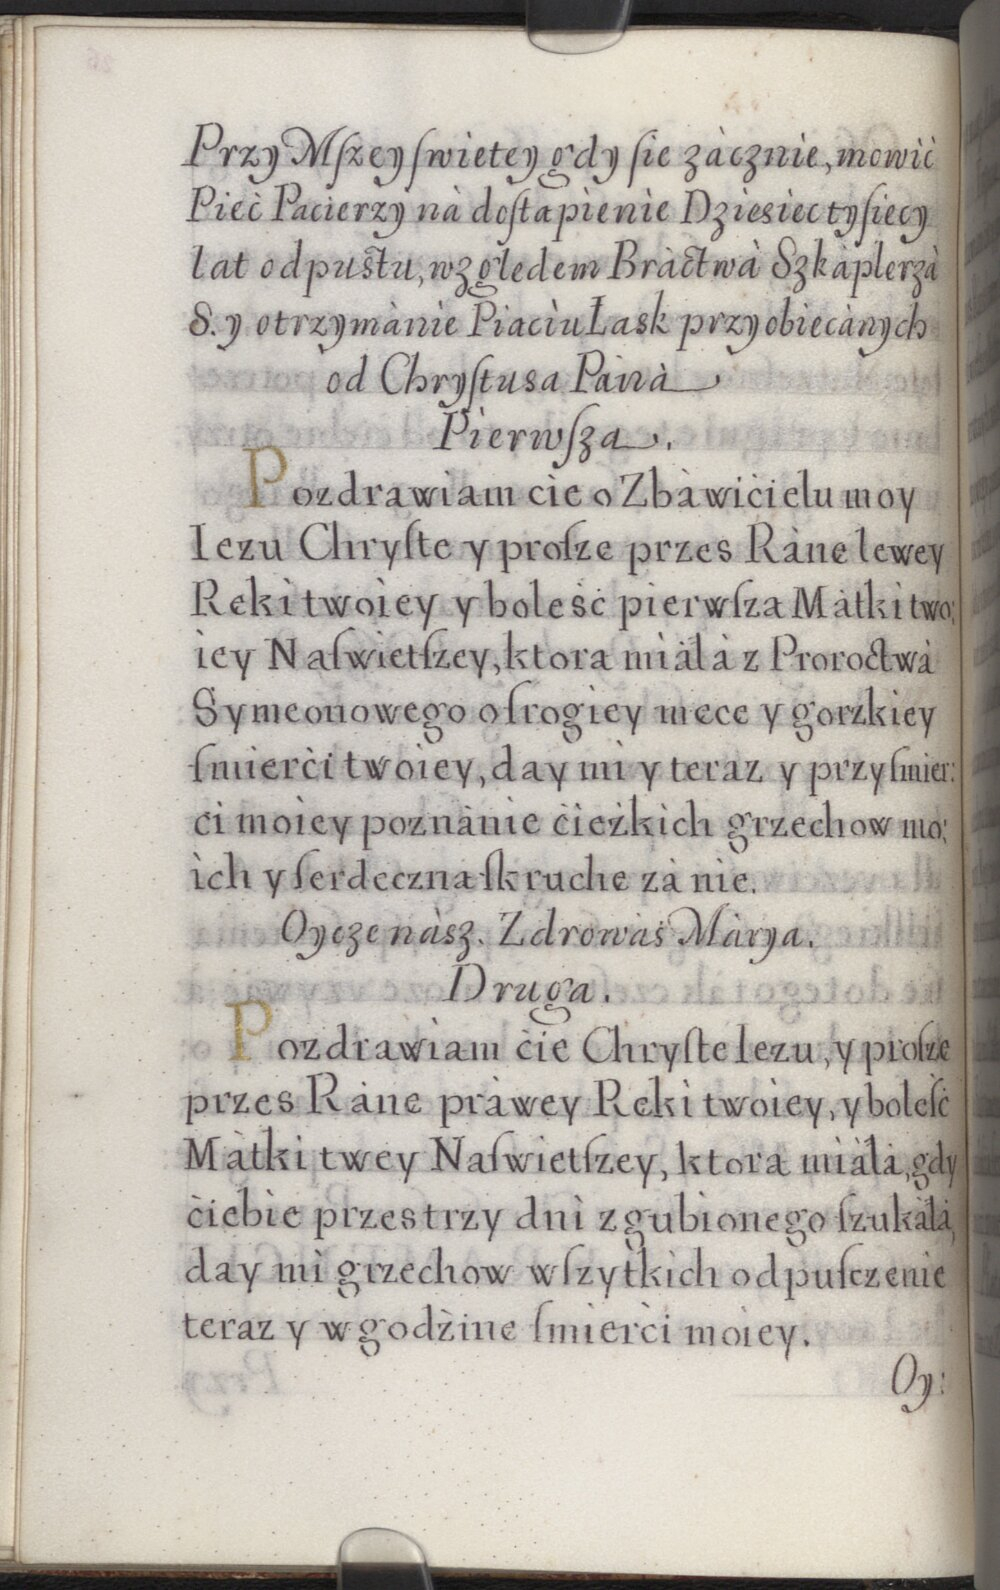 Przy Mſzey ſwietey gdy ſie zàcznie, mowić
Pieć Pacierzy nà doſtapienie Dziesiec tyſiecy
lat odpustu, względem Bràctwà Szkàplerzà
S. y otrzymànie Piaciu Łask przyobiecànych
od Chryſtusa Panà
Pierwſza.
Pozdrawiam cie o Zbàwićielu moy
Iezu Chryſte y proſze przes Ràne lewey
Reki twoiey y boleść pierwſza Màtki two:
iey Naſwietſzey, ktora miàłà z Proroctwà
Symeonowego o ſrogiey mece y gorzkiey
ſmierći twoiey, day mi y teraz y przy ſmier:
ci moiey poznànie ćieżkich grzechow mo:
ich y ſerdeczna ſkruche zà nie.
Oycze nàsz. Zdrowàś Màrya.
Druga.
Pozdrawiam ćie Chryſte Iezu, y proſze
przes Ràne pràwey Reki twoiey, y boleſć
Màtki twey Naſwietſzey, ktora miàłà, gdy
ćiebie przes trzy dni zgubionego ſzukàłà,
day mi grzechow wſzytkich odpuſczenie
teraz y w godźine ſmierći moiey.
Oy: